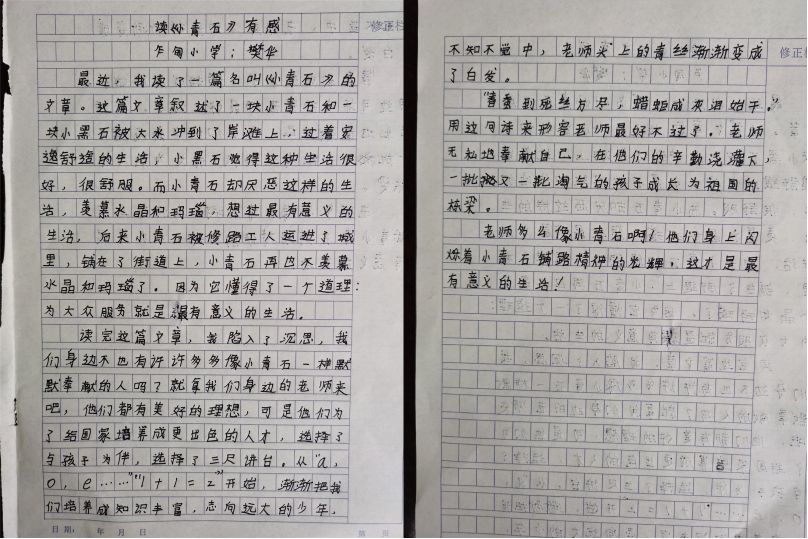 读《小青石》有感
乍甸小学：樊华
最近，我读了一篇名叫《小青石》的
文章。这篇文章叙述了一块小青石和一
块小黑石被大水冲到了岸滩上，过着安
逸舒适的生活，小黑石觉得这种生活很
好，很舒服。而小青石却厌恶这样的生
活，羡慕水晶和玛瑙，想过最有意义的
生活，后来小青石被修路工人运进了城
里，铺在了街道上，小青石再也不羡慕
水晶和玛瑙了。因为它懂得了一个道理：
为大众服务就是最有意义的生活。
读完这篇文章，我陷入了沉思，我
们身边不也有许许多多像小青石一样默
默奉献的人吗？就拿我们身边的老师来
吧，他们都有美好的理想，可是他们为
了给国家培养成更出色的人才，选择了
与孩子为伴，选择了三尺讲台。从“a，
o，e……”“1+1=2”开始，渐渐把我
们培养成知识丰富，志向远大的少年，
日期： 年 月 日
第 页
修正栏
不知不觉中，老师头上的青丝渐渐变成
了白发。
“春蚕到死丝方尽，蜡炬成灰泪始干。”
用这句诗来形容老师最好不过了。老师
无私地奉献自己，在他们的辛勤浇灌下，
一批又一批淘气的孩子成长为祖国的
栋梁。
老师多么像小青石啊！他们身上闪
烁着小青石铺路精神的光辉，这才是最
有意义的生活！
修正栏